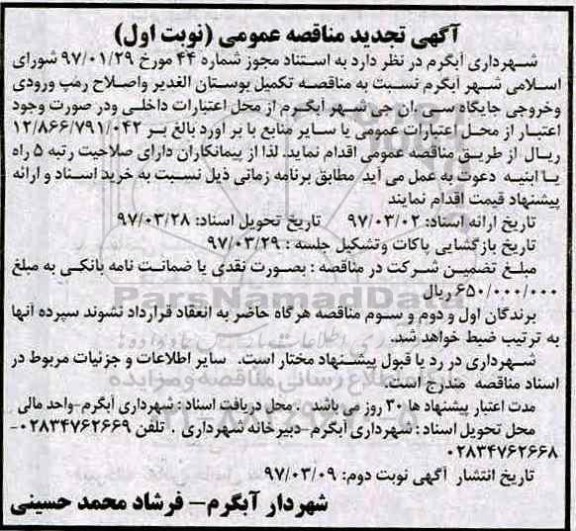 آگهی تجدید مناقصه عمومی (نوبت اول)
شهرداری آبگرم در نظر دارد به استناد مجوز شماره ۴۴ مورخ ۹۷/۰۱/۲۹ شورای
اسلامی شهر آبگرم نسبت به مناقصه تکمیل بوستان الغدیر واصلاح رمپ ورودی
وخروجی جایگاه سی.ان جی شهر آبگرم از محل اعتبارات داخلی ودر صورت وجود
اعتبار از محل اعتبارات عمومی یا سایر منابع با بر آورد بالغ بر ۱۲/۸۶۶/۷۹۱/۰۴۲
ریال از طریق مناقصه عمومی اقدام نماید. لذا از پیمانکاران دارای صلاحیت رتبه ۵ راه
یا ابنیه دعوت به عمل می آید مطابق برنامه زمانی ذیل نسبت به خرید اسناد و ارائه
پیشنهاد قیمت اقدام نمایند
تاریخ ارائه اسناد: ۹۷/۰۳/۰۲ تاریخ تحویل اسناد: ۹۷/۰۳/۲۸
تاریخ بازگشایی پاکات وتشکیل جلسه : ۹۷/۰۳/۲۹
مبلغ تضمین شرکت در مناقصه : بصورت نقدی یا ضمانت نامه بانکی به مبلغ
۶۵۰/۰۰۰/۰۰۰ ریال
برندگان اول و دوم و سوم مناقصه هرگاه حاضر به انعقاد قرارداد نشوند سپرده آنها
به ترتیب ضبط خواهد شد.
شهرداری در رد یا قبول پیشنهاد مختار است. سایر اطلاعات و جزئیات مربوط در
اسناد مناقصه مندرج است.
مدت اعتبار پیشنهاد ها ۳۰ روز می باشد . محل دریافت اسناد : شهرداری آبگرم-واحد مالی
محل تحویل اسناد : شهرداری آبگرم-دبیرخانه شهرداری . تلفن ۰۲۸۳۴۷۶۲۶۶۹-
۰۲۸۳۴۷۶۲۶۶۸
تاریخ انتشار آگهی نوبت دوم: ۹۷/۰۳/۰۹
شهردار آبگرم- فرشاد محمد حسینی
ParsNamadData